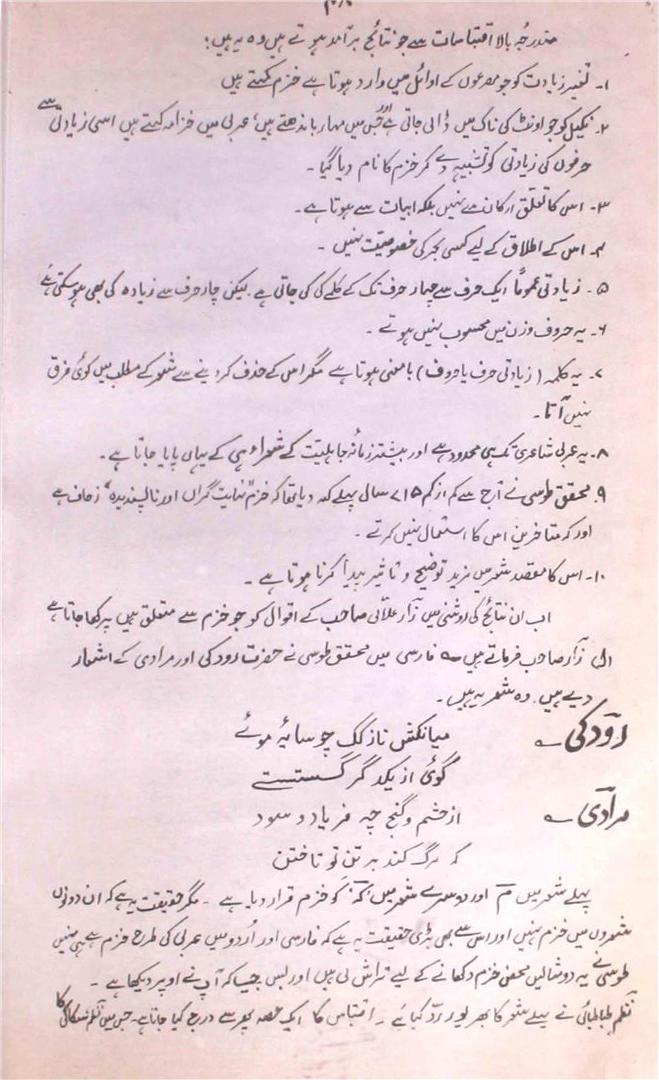 مندرجہ بالا اقتباسات سے جو نتائج برآمد ہوتے ہیں وہ یہ ہیں:
۱۔ تغیر زیادت کو جو مصرعوں کے اوائل میں وارد ہوتا ہے خزم کہتے ہیں
۲۔ نکیل کو جو اونٹ کی ناک میں ڈالی جاتی ہے اور جس میں مہار باندھتے ہیں، عربی میں خزامہ کہتے ہیں اسی زیادتی سے
حرفوں کی زیادتی کو تشبیہ دے کر خزم کا نام دیا گیا۔
۳۔ اس کا تعلق ارکان سے نہیں بلکہ ابیات سے ہوتا ہے۔
۴۔ اس کے اطلاق کے لیے کسی بحر کی خصوصیت نہیں۔
۵۔ زیادتی عموماً ایک حرف سے چہار حرف تک کے کلمے کی کی جاتی ہے۔ لیکن چار حرف سے زیادہ کی بھی ہو سکتی ہے
۶۔ یہ حروف وزن میں محسوب نہیں ہوتے۔
۷۔ یہ کلمہ (زیادتی حرف یا حروف) بامعنی ہوتا ہے مگر اس کے حذف کر دینے سے شعر کے مطلب میں کوئی فرق
نہیں آتا۔
۸۔ یہ عربی شاعری تک ہی محدود ہے اور بیشتر زمانۂ جاہلیت کے شعراء ہی کے یہاں پایا جاتا ہے۔
۹۔ محقق طوسی نے آج سے کم از کم ۷۱۵ سال پہلے کہہ دیا تھا کہ خزم "نہایت گراں اور ناپسندیدہ" زحاف ہے
اور کہ متاخرین اس کا استعمال نہیں کرتے۔
۱۰۔ اس کا مقصد شعر میں مزید توضیح و تاثیر پیدا کرنا ہوتا ہے۔
اب ان نتائج کی روشنی میں زار علائی صاحب کے اقوال کو جو خزم سے متعلق ہیں پرکھا جاتا ہے
زار صاحب فرماتے ہیں؎ فارسی میں محقق طوسی نے حضرت رودکی اور مرادی کے اشعار
دیے ہیں۔ وہ شعر یہ ہیں۔
رودکی؎ میانکش نازکک چو سایۂ موئے
گوئی از یکدگر گسستے
مرادی؎ از حشم و گنج چہ فریاد و سود
کہ مرگ کند بر تن تو تاختن
پہلے شعر میں م اور دوسرے شعر میں 'کہ' کو خزم قرار دیا ہے۔ مگر حقیقت یہ ہے کہ ان دونوں
شعروں میں خزم نہیں اور اس سے بھی بڑی حقیقت یہ ہے کہ فارسی اور اُردو میں عربی کی طرح خزم ہے ہی نہیں
طوسی نے یہ دو مثالیں محض خزم دکھانے کے لیے تراش لی ہیں اور بس جیسا کہ آپ نے اوپر دیکھا ہے۔
نظم طباطبائی نے پہلے شعر کا بھرپور ردّ کیا ہے۔ اقتباس کا ایک حصہ پھر سے درج کیا جاتا ہے۔ جس میں